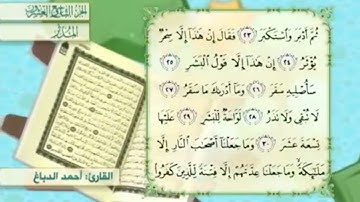 الجزء التاسع والعشرون
المدثر
ثُمَّ أَدْبَرَ وَاسْتَكْبَرَ ٢٣ فَقَالَ إِنْ هَٰذَا إِلَّا سِحْرٌ
يُؤْثَرُ ٢٤ إِنْ هَٰذَا إِلَّا قَوْلُ الْبَشَرِ ٢٥
سَأُصْلِيهِ سَقَرَ ٢٦ وَمَا أَدْرَاكَ مَا سَقَرُ ٢٧
لَا تُبْقِي وَلَا تَذَرُ ٢٨ لَوَّاحَةٌ لِلْبَشَرِ ٢٩ عَلَيْهَا
تِسْعَةَ عَشَرَ ٣٠ وَمَا جَعَلْنَا أَصْحَابَ النَّارِ إِلَّا
مَلَائِكَةً وَمَا جَعَلْنَا عِدَّتَهُمْ إِلَّا فِتْنَةً لِلَّذِينَ كَفَرُوا
القارئ: أحمد الدباغ